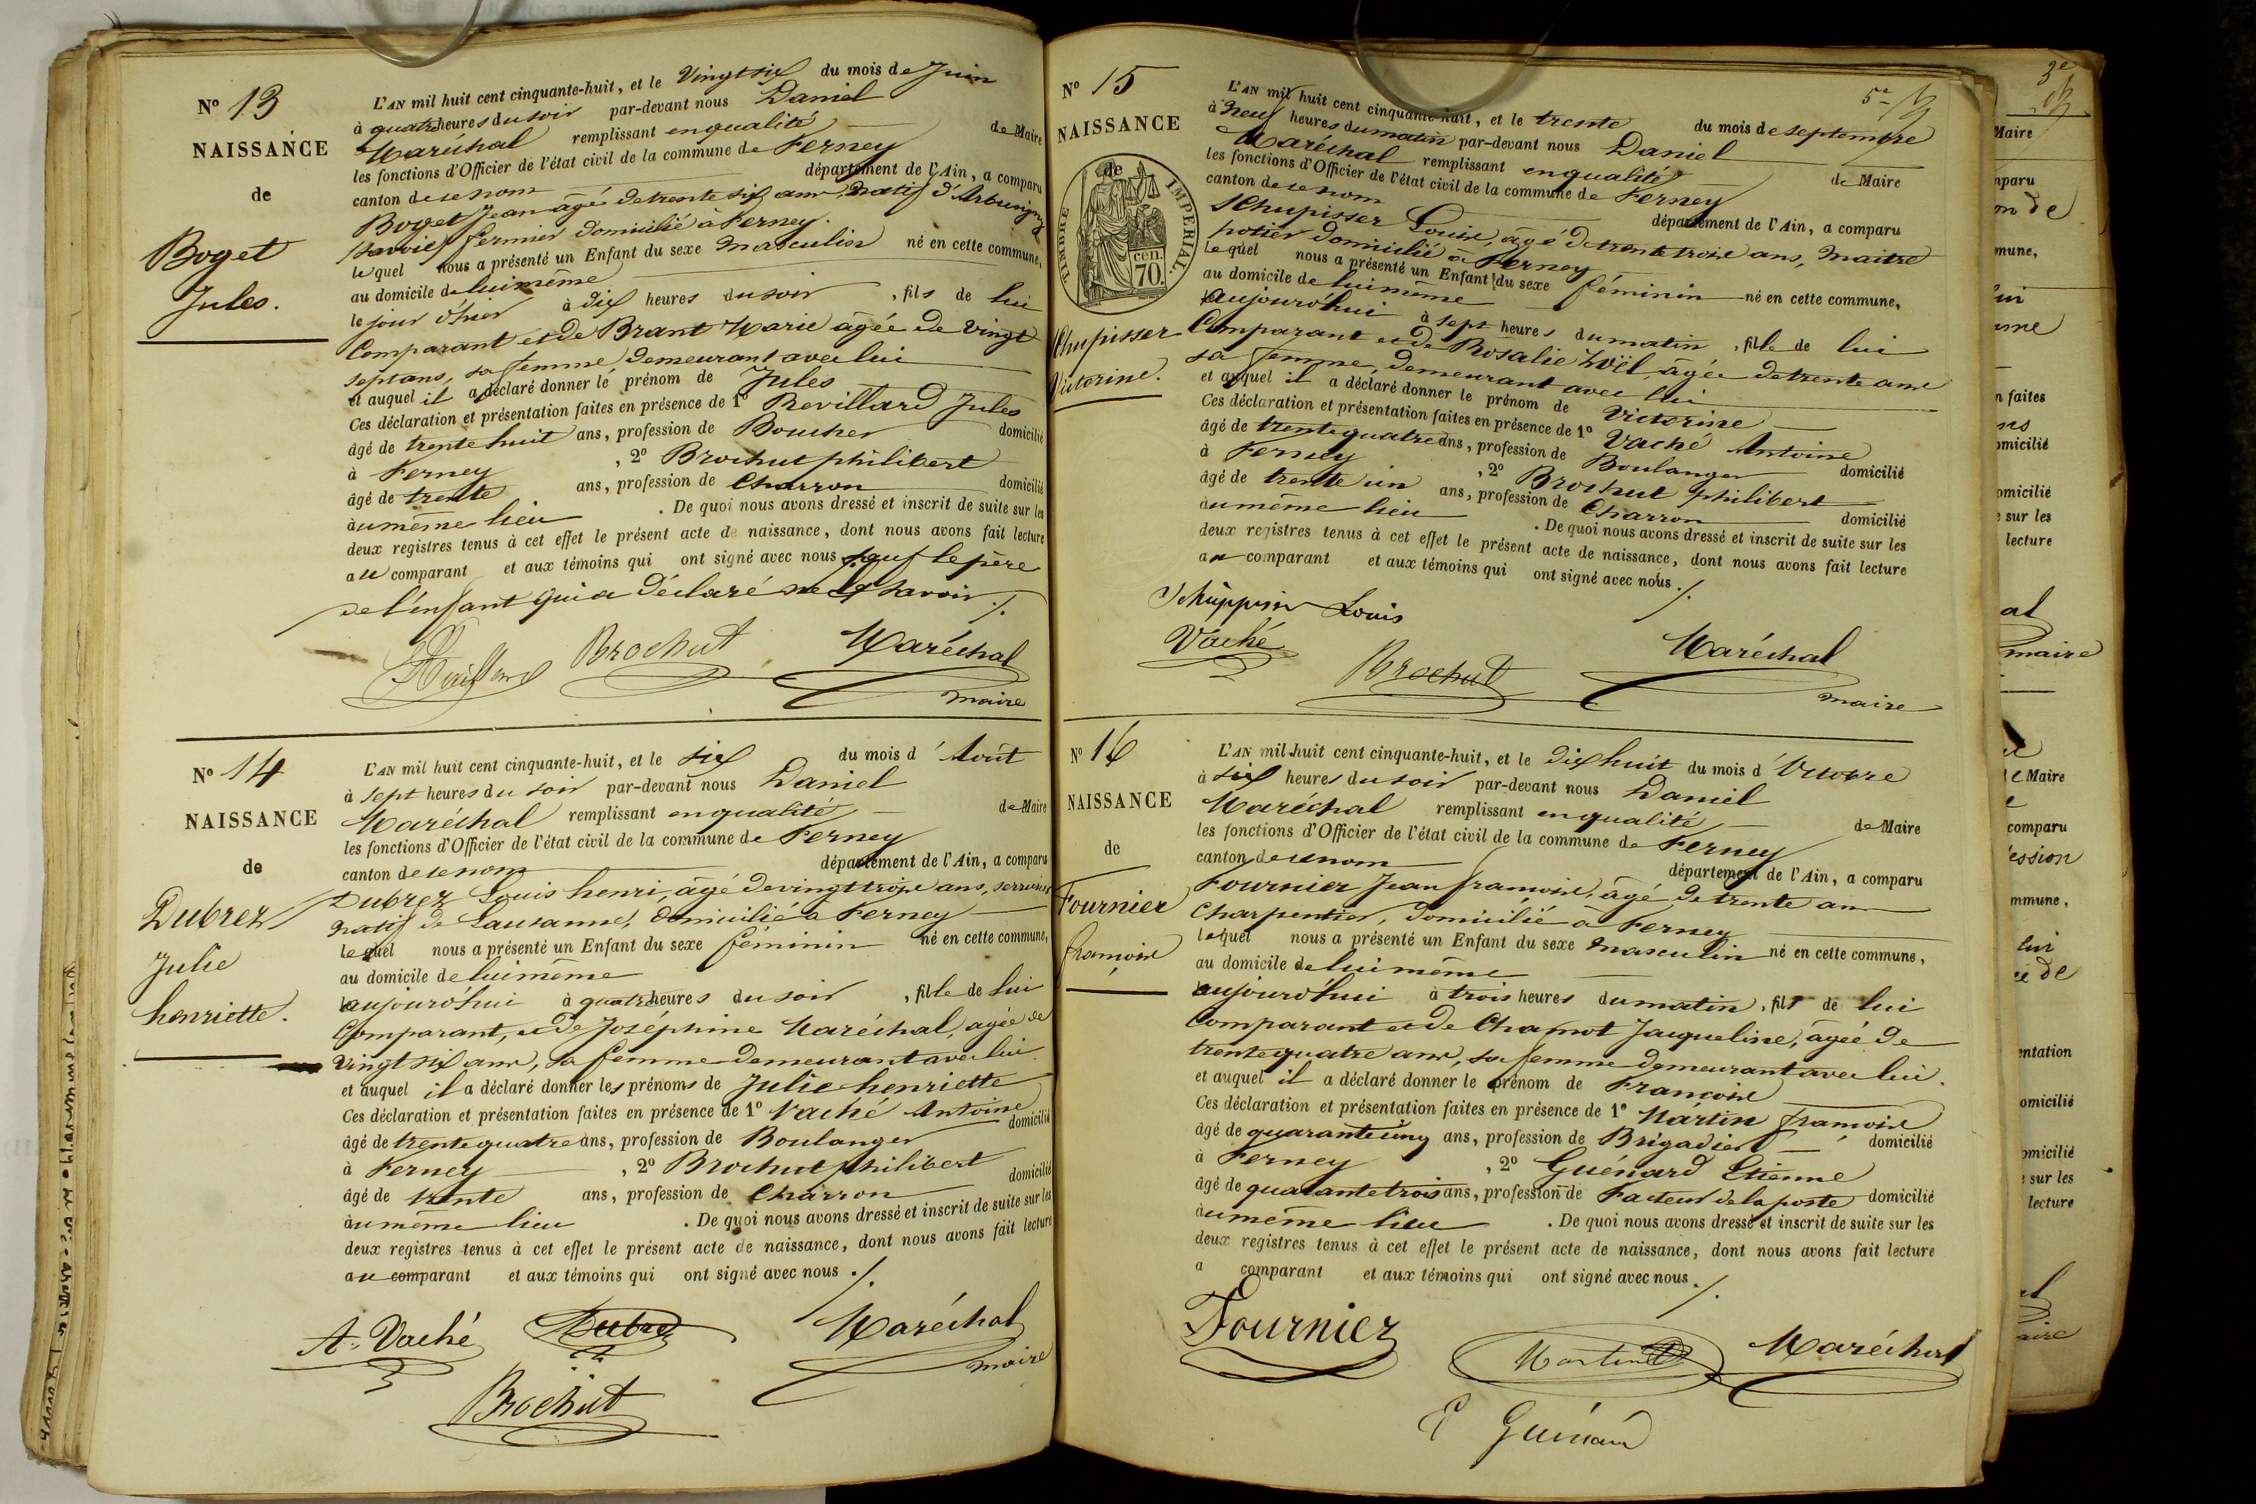 Nº 13
NAISSANCE
de
Boget
Jules.
L'AN mil huit cent cinquante-huit, et le Vingt six du mois de Juin
à quatre heures du soir par-devant nous Daniel
Maréchal remplissant en qualité de Maire
les fonctions d'Officier de l'état civil de la commune de Ferney
canton de ce nom département de l'Ain, a comparu
Boget Jean âgé de trente six ans, natif d'Arbusigny
(Savoie) fermier domicilié à Ferney.
lequel nous a présenté un Enfant du sexe masculin né en cette commune,
au domicile de lui même
le jour d'hier à dix heures du soir, fils de lui
Comparant et de Brant Marie âgée de vingt
sept ans, sa femme demeurant avec lui
et auquel il a déclaré donner le prénom de Jules
Ces déclaration et présentation faites en présence de 1º Revillard Jules
âgé de trente huit ans, profession de Boucher domicilié
à Ferney, 2º Brochut philibert
âgé de trente ans, profession de Charron domicilié
au même lieu. De quoi nous avons dressé et inscrit de suite sur les
deux registres tenus à cet effet le présent acte de naissance, dont nous avons fait lecture
au comparant et aux témoins qui ont signé avec nous sauf le père
de l'enfant qui a déclaré ne le savoir ./.
Brochut Maréchal
maire
Nº 14
NAISSANCE
de
Dubrez
Julie
henriette.
L'AN mil huit cent cinquante-huit, et le six du mois d'Août
à sept heures du soir par-devant nous Daniel
Maréchal remplissant en qualité de Maire
les fonctions d'Officier de l'état civil de la commune de Ferney
canton de ce nom département de l'Ain, a comparu
Dubrez Louis henri, âgé de vingt trois ans, serrurier
natif de Lausanne, domicilié à Ferney
lequel nous a présenté un Enfant du sexe féminin né en cette commune,
au domicile de lui même
aujourd'hui à quatre heures du soir, fille de lui
Comparant, et de Joséphine Maréchal, agée de
vingt six ans, sa femme demeurant avec lui
et auquel il a déclaré donner les prénoms de Julie henriette
Ces déclaration et présentation faites en présence de 1º Vaché Antoine
âgé de trente quatre ans, profession de Boulanger domicilié
à Ferney, 2º Brochut philibert
âgé de trente ans, profession de Charron domicilié
au même lieu. De quoi nous avons dressé et inscrit de suite sur les
deux registres tenus à cet effet le présent acte de naissance, dont nous avons fait lecture
au comparant et aux témoins qui ont signé avec nous ./.
A. Vaché Dubrez Maréchal
maire
Brochut
5e
Nº 15
NAISSANCE
de
TIMBRE IMPERIAL.
cen.
70.
Schupisser
Victorine.
L'AN mil huit cent cinquante-huit, et le trente du mois de septembre
à neuf heures du matin par-devant nous Daniel
Maréchal remplissant en qualité de Maire
les fonctions d'Officier de l'état civil de la commune de Ferney
canton de ce nom département de l'Ain, a comparu
Schupisser Louis, âgé de trente trois ans, maitre
potier domicilié à Ferney
lequel nous a présenté un Enfant du sexe féminin né en cette commune,
au domicile de lui même
aujourd'hui à sept heures du matin, fille de lui
Comparant et de Rosalie Zoël, âgée de trente ans
sa femme, demeurant avec lui
et auquel il a déclaré donner le prénom de Victorine
Ces déclaration et présentation faites en présence de 1º Vaché Antoine
âgé de trente quatre ans, profession de Boulanger domicilié
à Ferney, 2º Brochut philibert
âgé de trente un ans, profession de Charron domicilié
au même lieu. De quoi nous avons dressé et inscrit de suite sur les
deux registres tenus à cet effet le présent acte de naissance, dont nous avons fait lecture
au comparant et aux témoins qui ont signé avec nous ./.
Schuppisser Louis
Vaché Maréchal
Brochut maire
Nº 16
NAISSANCE
de
Fournier
françois
L'AN mil huit cent cinquante-huit, et le dix huit du mois d'Octobre
à six heures du soir par-devant nous Daniel
Maréchal remplissant en qualité de Maire
les fonctions d'Officier de l'état civil de la commune de Ferney
canton de ce nom département de l'Ain, a comparu
Fournier Jean françois, âgé de trente ans
Charpentier, domicilié à Ferney
lequel nous a présenté un Enfant du sexe masculin né en cette commune,
au domicile de lui même
aujourd'hui à trois heures du matin, fils de lui
Comparant et de Chamot Jacqueline, âgée de
trente quatre ans, sa femme demeurant avec lui.
et auquel il a déclaré donner le prénom de François
Ces déclaration et présentation faites en présence de 1º Martin françois
âgé de quarante cinq ans, profession de Brigadier domicilié
à Ferney, 2º Guénard Etienne
âgé de quarante trois ans, profession de Facteur de la poste domicilié
au même lieu. De quoi nous avons dressé et inscrit de suite sur les
deux registres tenus à cet effet le présent acte de naissance, dont nous avons fait lecture
a comparant et aux témoins qui ont signé avec nous ./.
Fournier Martin Maréchal
E Guénard
3e
Maire
mparu
mmune,
faites
omicilié
omicilié
sur les
lecture
maire
Maire
comparu
mmune,
lui
entation
omicilié
omicilié
sur les
lecture